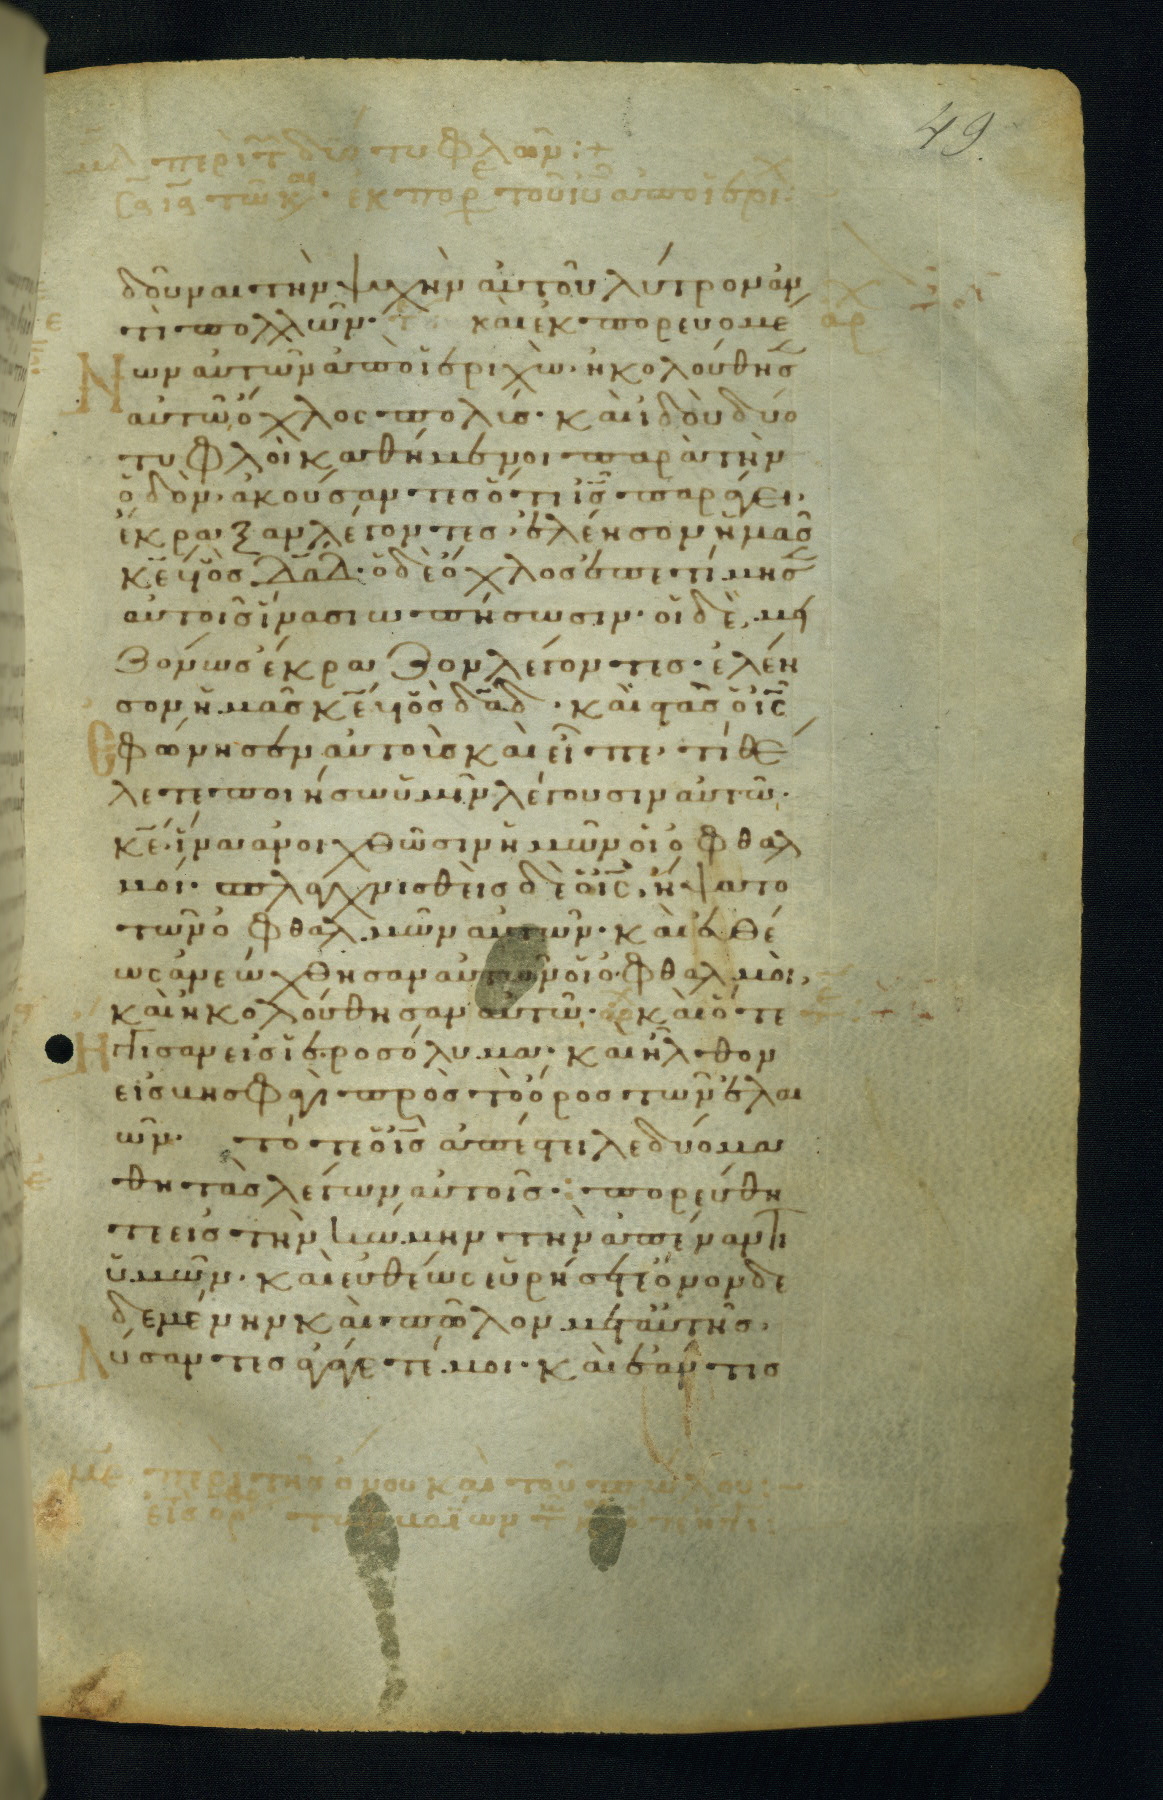 49
περὶ τῶν δύο τυφλῶν :+
δοῦναι τὴν ψυχὴν αὐτοῦ λύτρον ἀν
τὶ πολλῶν · και ἐκπορευομέ
Νων αυτῶν ἀπὸ ἱεριχὼ · ἠκολούθησ
αυτῶ ὄχλος πολύσ · καὶ ἰδοὺ δύο
τυφλοὶ καθήμενοι παρὰ τὴν
ὁδὸν · ἀκούσαντεσ ὅτι ι̅σ̅ παράγει ·
ἔκραξαν λέγοντεσ · ἐλέησον ἡμασ
κ̅ε̅ υἱὸσ δ̅α̅δ̅ · ὁ δὲ ὄχλοσ ἐπετίμησ
αυτοῖσ ἵνα σιωπήσωσιν · οἱ δὲ μεῖ
ζόνωσ ἔκραζον λέγοντεσ · ἐλέη
σον ἡμᾶσ κ̅ε̅ υἱὸσ δ̅α̅δ̅ · καὶ στὰσ ὁ ι̅σ̅
Εφώνησεν αυτοὺσ καὶ εἶπε · τί θέ
λετε ποιήσω ὑμῖν λέγουσιν αὐτῶ ·
κ̅ε̅ · ἵνα ἀνοιχθῶσιν ἡμῶν οἱ ὀφθαλ
μοί · σπλαγχνισθεὶσ δὲ ὁ ι̅σ̅ · ἥψατο
τῶν ὀφθαλμῶν αὐτῶν · καὶ εὐθέ
ωσ ἀνεώχθησαν αυτῶν οἱ ὀφθαλμοὶ,
καὶ ἠκολούθησαν αὐτῶ · καὶ ὅτε
Ηγγισαν εἰσ ἱεροσόλυμα · καὶ ἦλθον
εἰσ βησφαγὶ πρὸσ τὸ ὄροσ τῶν ἐλαι
ῶν · τότε ὁ ι̅σ̅ ἀπέστειλε δύο μα
θητὰσ λέγων αὐτοῖσ · πορεύθη
τε εἰσ τὴν κώμην τὴν ἀπέναντι
ὑμῶν · καὶ εὐθέωσ εὑρήσετε ὄνον δε
δεμένην καὶ πῶλον μετ αὐτῆσ ·
Λύσαντεσ ἀγάγετέ μοι · καὶ ἐάν τισ
περὶ τῆσ ὄνου καὶ τοῦ πώλου :~